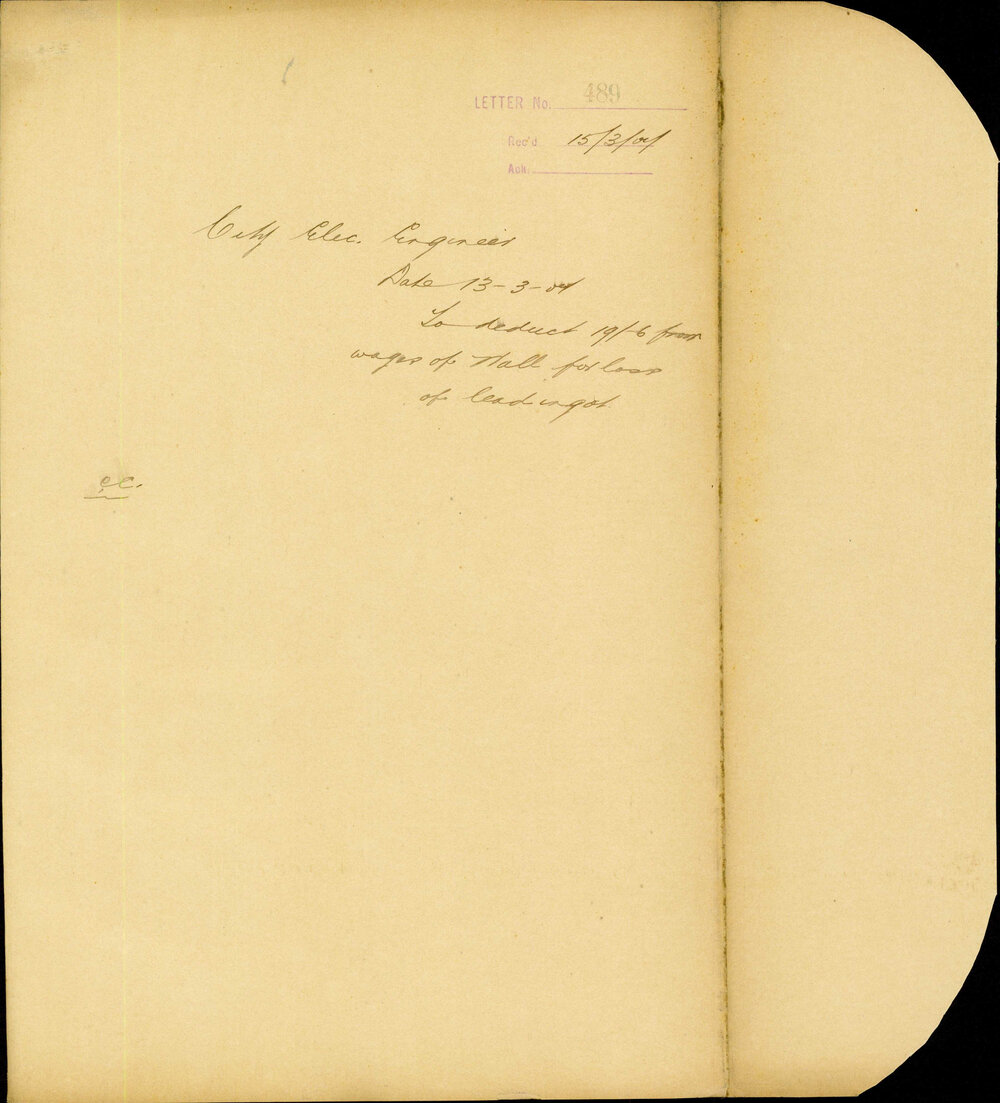 LETTER No. 489
Rec'd 15/3/04
Ack.
City Elec. Engineer
Date 13-3-04
To deduct 19/6 from
wages of Hall for loss
of lead ingot
c.c.